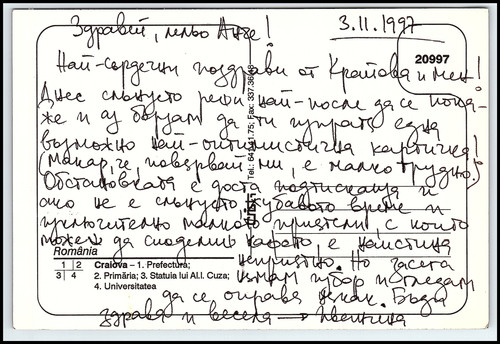 3.11.1997
Здравей, лельо Анче!
20997
Най-сърдечни поздрави от Крайова и мен!
Днес слънцето реши най-после да се пока-
же и аз бързам да ти изпратя една
възможно най-оптимистична картичка!
(Макар, че, повярвай ми, е малко трудно.)
Обстановката е доста подтискаща и
ако не е слънцето, хубавото време и
изключително малкото приятели, с които
можеш да споделиш каквото е, наистина
неприятно. Но засега
нямам избор и гледам
да се оправя някак. Бъди
здрава и весела → Цветина
Tel.: 641.41.75; Fax: 337.36.48
România
1 2
3 4
Craiova – 1. Prefectura;
2. Primăria; 3. Statuia lui Al.I. Cuza;
4. Universitatea